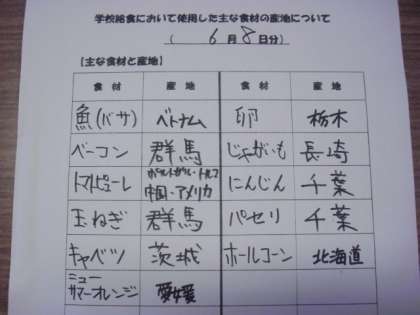 学校給食において使用した主な食材の産地について
( 6月 8日分)
【主な食材と産地】
食材 産地 食材 産地
魚(バサ) ベトナム 卵 栃木
ベーコン 群馬 じゃがいも 長崎
トマトピューレ ポルトガル・トルコ 中国・アメリカ にんじん 千葉
玉ねぎ 群馬 パセリ 千葉
キャベツ 茨城 ホールコーン 北海道
ニュー
サマーオレンジ 愛媛